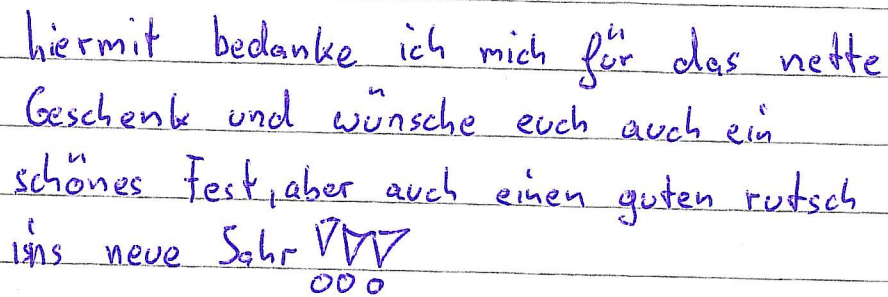 hiermit bedanke ich mich für das nette
Geschenk und wünsche euch auch ein
schönes Fest, aber auch einen guten rutsch
ins neue Jahr !!!